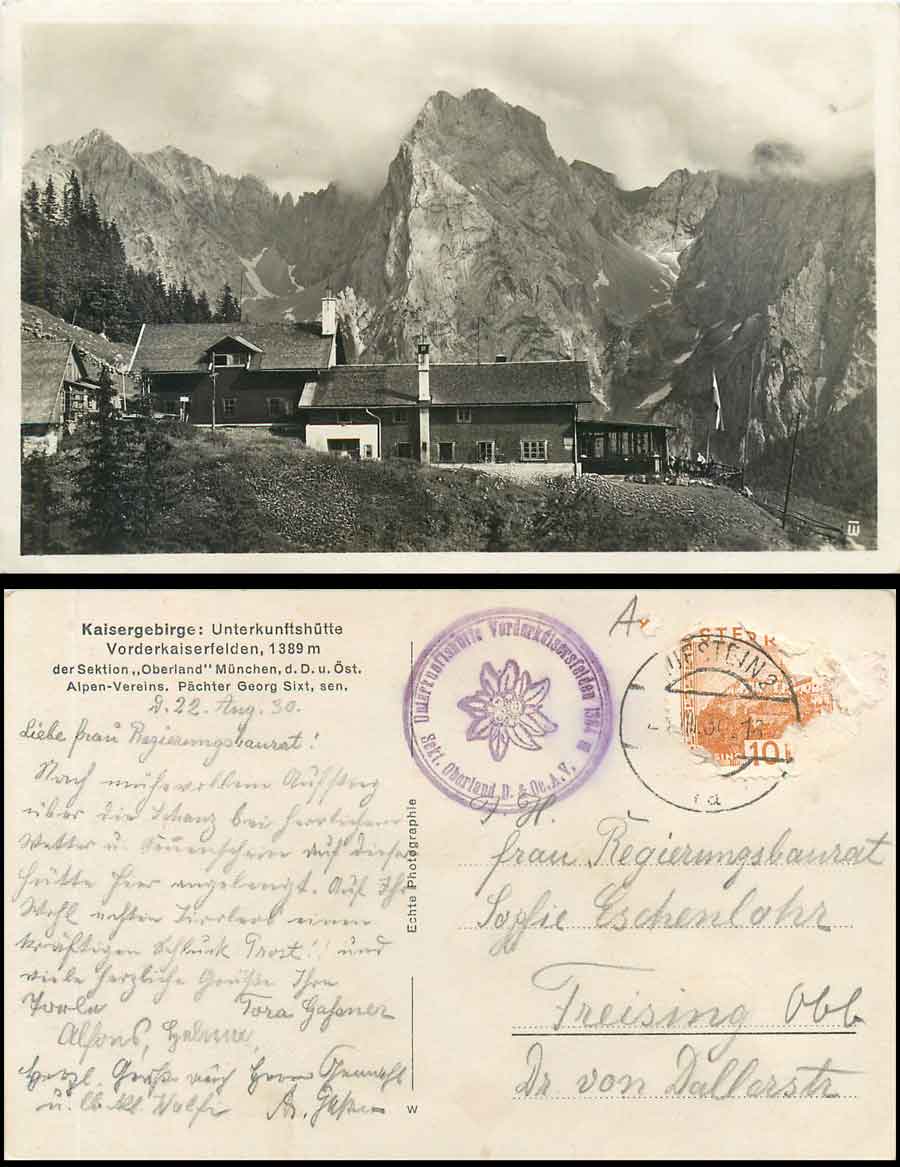 Kaisergebirge: Unterkunftshütte
Vorderkaiserfelden, 1389 m
der Sektion „Oberland" München, d. D. u. Öst.
Alpen-Vereins. Pächter Georg Sixt, sen.
D. 22. Aug. 30.
Liebe Frau Regierungsbaurat!
Nach mühevollem Aufstieg
über die Schanz bei herrlichem
Wetter u. Sonnenschein auf dieser
Hütte hier angelangt. Auf Ihr
Wohl echten Tirolers einen
kräftigen Schluck Prost!! und
viele herzliche Grüße Ihre
Tora Gaßner
Alfons,
Herzl. Grüße auch Herrn Gemahl
u.
Unterkunftshütte Vorderkaiserfelden 1384 m
Sekt. Oberland D. & Oe. A. V.
Echte Photographie
W
A
ÖSTERR
10
UFSTEIN 2
a
Frau Regierungsbaurat
Sophie Eschenlohr
Freising Obb
Dr von Dallerstr.